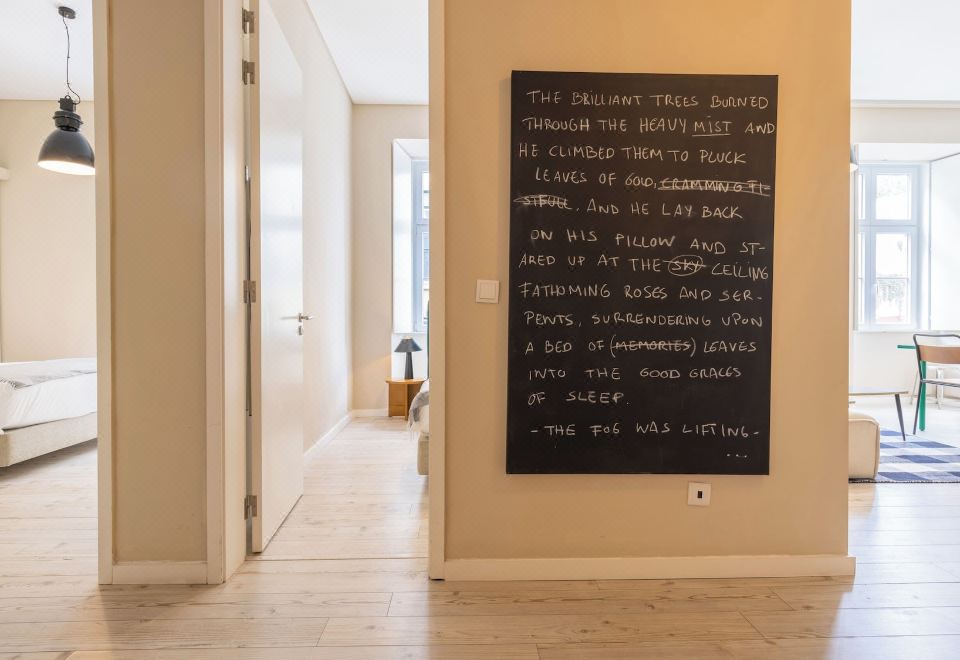 THE BRILLIANT TREES BURNED
THROUGH THE HEAVY MIST AND
HE CLIMBED THEM TO PLUCK
LEAVES OF GOLD, CRAMMING FI-
STFULL, AND HE LAY BACK
ON HIS PILLOW AND ST-
ARED UP AT THE SKY CEILING
FATHOMING ROSES AND SER-
PENTS, SURRENDERING UPON
A BED OF (MEMORIES) LEAVES
INTO THE GOOD GRACES
OF SLEEP.
- THE FOG WAS LIFTING -
...